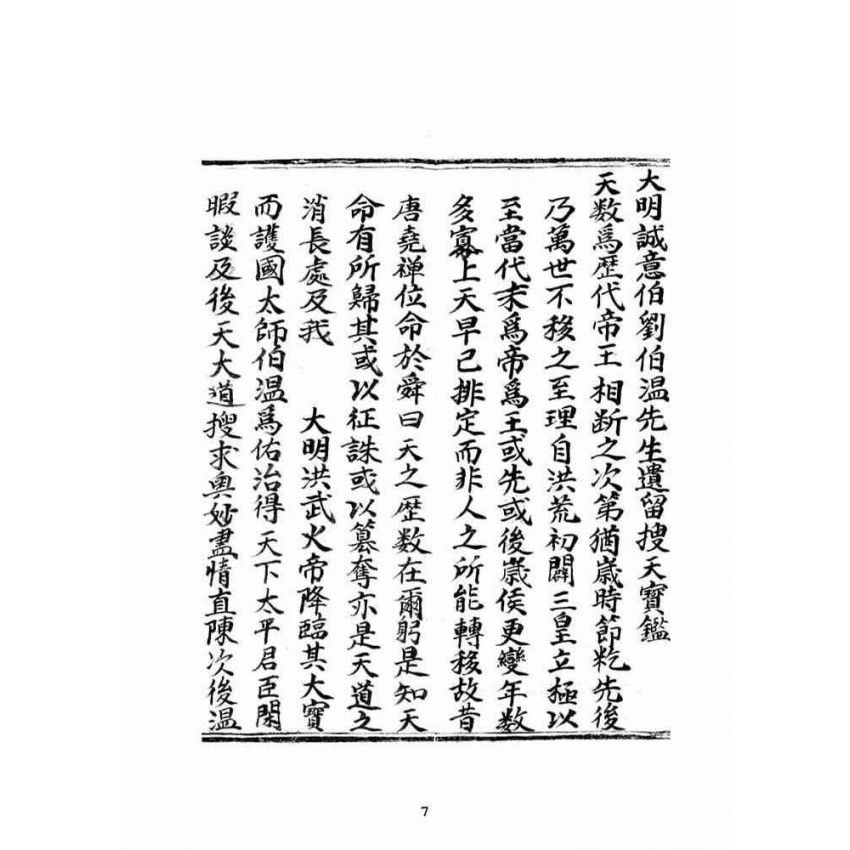 大明誠意伯劉伯温先生遺留搜天寶鑑
天数爲歴代帝王相断之次第猶歳時節氣先後
乃萬世不移之至理自洪荒初闢三皇立極以
至當代末爲帝爲王或先或後歳侯更變年数
多寡上天早已排定而非人之所能轉移故昔
唐堯禅位命於舜曰天之歴数在爾躬是知天
命有所歸其或以征誅或以簒奪亦是天道之
消長處及我 大明洪武火帝降臨其大寶
而護國太師伯温爲佑治得天下太平君臣閑
暇談及後天大道搜求奥妙盡情直陳次後温
7